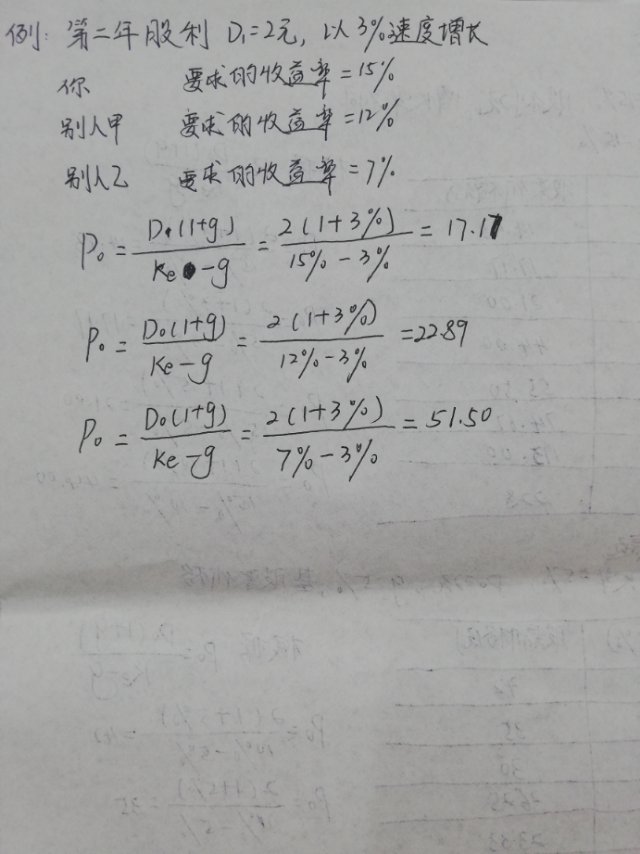 例: 第二年股利 D₁=2元, 以3%速度增长
你 要求的收益率=15%
别人甲 要求的收益率=12%
别人乙 要求的收益率=7%
P₀ = D₀(1+g) / Ke-g = 2(1+3%) / 15%-3% = 17.17
P₀ = D₀(1+g) / Ke-g = 2(1+3%) / 12%-3% =22.89
P₀ = D₀(1+g) / Ke-g = 2(1+3%) / 7%-3% = 51.50